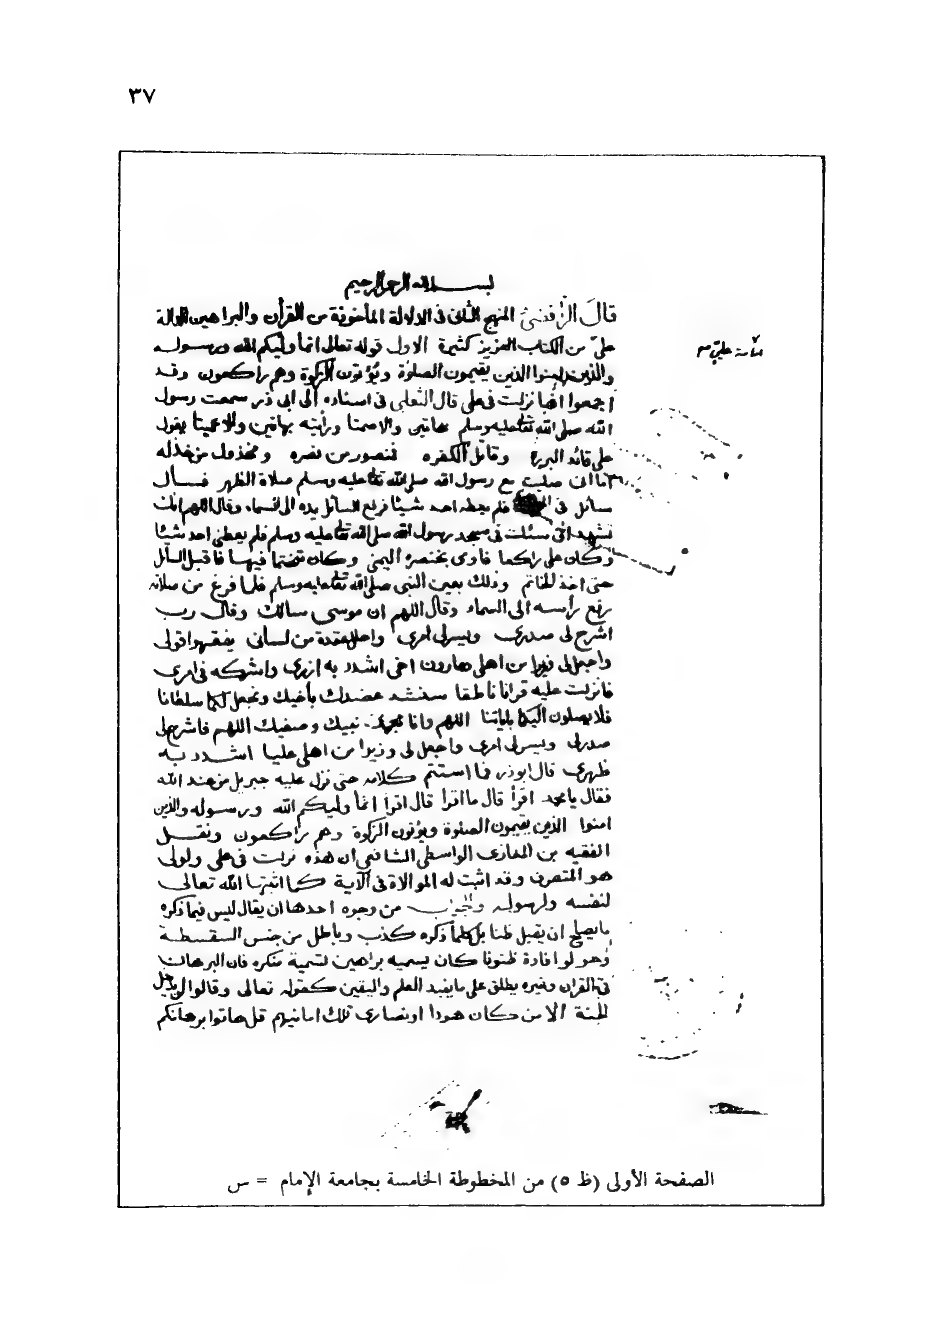 ٣٧
بسم الله الرحمن الرحيم
قال الرافضي المنهج الثاني في الادلة المأخوذة من القرأن والبراهين الدالة
على من الكتاب العزيز كثيرة الاول قوله تعالى انما وليكم الله ورسوله
امامة علي
والذين امنوا الذين يقيمون الصلوة ويؤتون الزكوة وهم راكعون وقد
اجمعوا انها نزلت في علي قال الثعلبي في اسناده الى ابي ذر سمعت رسول
الله صلى الله تعالى عليه وسلم بهاتين والا صمتا ورأيته بهاتين والا عميتا يقول
علي قائد البررة وقاتل الكفره فمنصور من نصره ومخذول من خذله
اما اني صليت مع رسول الله صلى الله تعالى عليه وسلم صلاة الظهر فسأل
سائل في فلم يعطه احد شيئا فرفع السائل يده الى السماء وقال اللهم انك
تشهد اني سئلت في مسجد رسول الله صلى الله تعالى عليه وسلم فلم يعطني احد شيئا
وكان علي راكعا فاومى بخنصره اليمنى وكان متختما فيها فاقبل السائل
حتى اخذ الخاتم وذلك بعين النبي صلى الله تعالى عليه وسلم فلما فرغ من صلاته
رفع رأسه الى السماء وقال اللهم ان موسى سالك وقال رب
اشرح لي صدري ويسر لي امري واحلل عقدة من لساني يفقهوا قولي
واجعل لي وزيرا من اهلي هارون اخي اشدد به ازري واشركه في امري
فانزلت عليه قرانا ناطقا سنشد عضدك بأخيك ونجعل لكما سلطانا
فلا يصلون اليكما باياتنا اللهم وانا محمد نبيك وصفيك اللهم فاشرح لي
صدري ويسر لي امري واجعل لي وزيرا من اهلي عليا اشدد به
ظهري قال ابوذر فما استتم كلامه حتى نزل عليه جبريل من عند الله
فقال يا محمد اقرأ قال ما اقرا قال اقرا انما وليكم الله ورسوله والذين
امنوا الذين يقيمون الصلوة ويؤتون الزكوة وهم راكعون ونقل
الفقيه بن المغازي الواسطي الشافعي ان هذه نزلت في علي والولي
هو المتصرف وقد اثبت له الموالاة في الآية كما اثبتها الله تعالى
لنفسه ولرسوله والجواب من وجوه احدها ان يقال ليس فيما ذكره
ما يصلح ان يقبل ظنا بل كلما ذكره كذب وباطل من جنس السفسطة
وهو لو افاده ظنونا كان يسميه براهين تسمية منكره فان البرهان
في القران وغيره يطلق على ما يفيد العلم واليقين كقوله تعالى وقالوا لن يدخل
الجنة الا من كان هودا او نصارى تلك امانيهم قل هاتوا برهانكم
الصفحة الأولى (ظ ٥) من المخطوطة الخامسة بجامعة الإمام = س